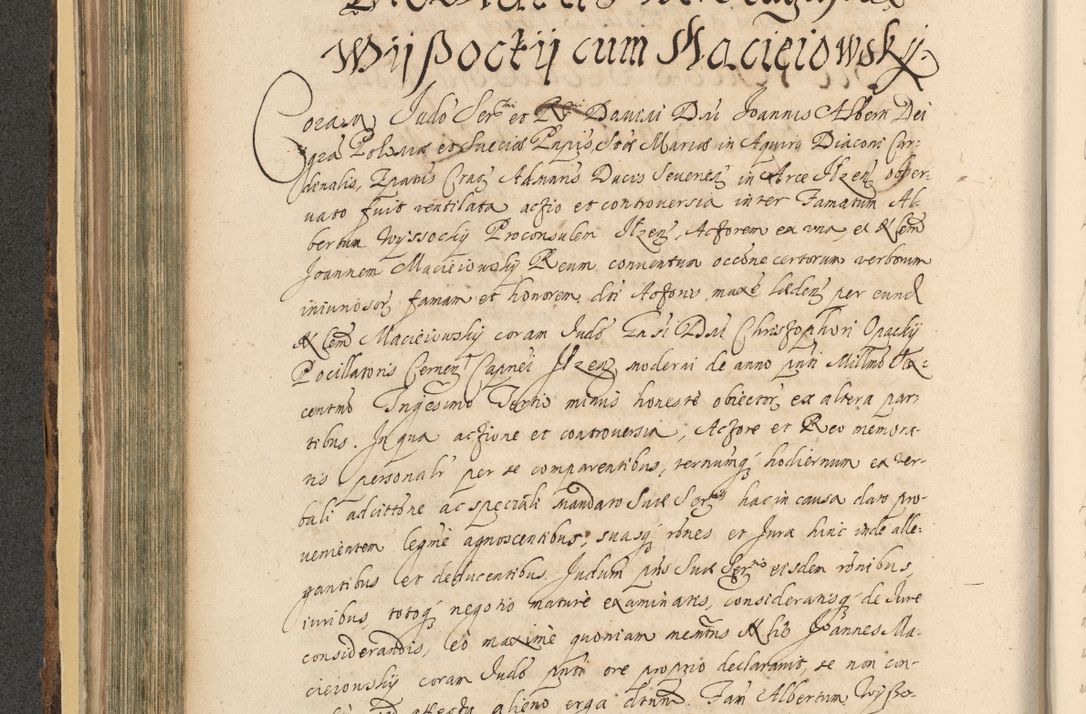 Wÿßockÿ cum Macieiowskÿ.
Coram Judō Ser.mi et R.mi Dn̄i Joannis Alberti Dei
gr̄a Poloniæ et Sueciæ Pnpis, Stæ Mariæ in Aquiro Diaconi Car-
denalis, Ep̄atus Crac̄ Admn̄ris Ducis Severieñ in Arce Ilzeñ obser-
vato fuit ventilata actio et controversia inter Famatum Al-
bertum Wyssockÿ Proconsulem Ilzeñ, Actorem ex una, et Nlem̄
Joannem Macieiowskÿ Reum, conventum occ̄ōne certorum verborum
iniuriosor̄ famam et honorem dti Actoris maxē lædeñ per eund
Nlem̄ Macieiowskÿ coram Judō Dn̄i Christophori Opackÿ
Pocillatoris Capnei Ilzeñ moderni de anno pn̄ti Millmo Sex-
centmo Trigesimo Tertio minus honestē obiector̄, ex altera par-
tibus. In qua actione et controversia, Actore et Reo memora-
tis personalr̄ per se comparentibus, terminumq́ hodiernum ex ver-
bali adcittōne ac speciali mandato Suæ Ser.tis hac in causa dato pro-
venientem legm̄ē agnoscentibus, suasq́ rōnes et Jura hinc inde alle-
gantibus et deducentibus. Judum pn̄s Suæ Ser.tis eisdem rōnibus,
iuribus totoq́ negotio maturē examinatis, consideratisq́ de Jure
considerandis, eo maximē quoniam Nlis Joannes Ma-
cieiowskÿ coram Judō pn̄ti ore proprio declaravit, se non con-
alieno erga Fam Albertum Wyßo-